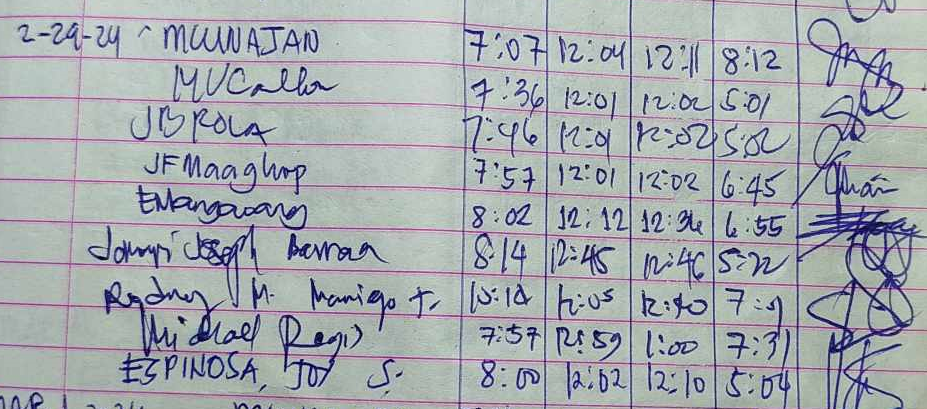 2-29-24 MCUNAJAN 7:07 12:04 12:11 8:12
7:36 12:01 12:02 5:01
JB ROLA 7:46 12:01 12:02 5:02
JF Maaghop 7:57 12:01 12:02 6:45
8:02 12:12 12:36 6:55
Joseph 8:14 12:45 12:46 5:22
Rodney M. Manigo 12:05 12:40
Michael Regis 7:57 12:59 1:00 7:31
ESPINOSA, JOY S. 8:00 12:02 12:10 5:04